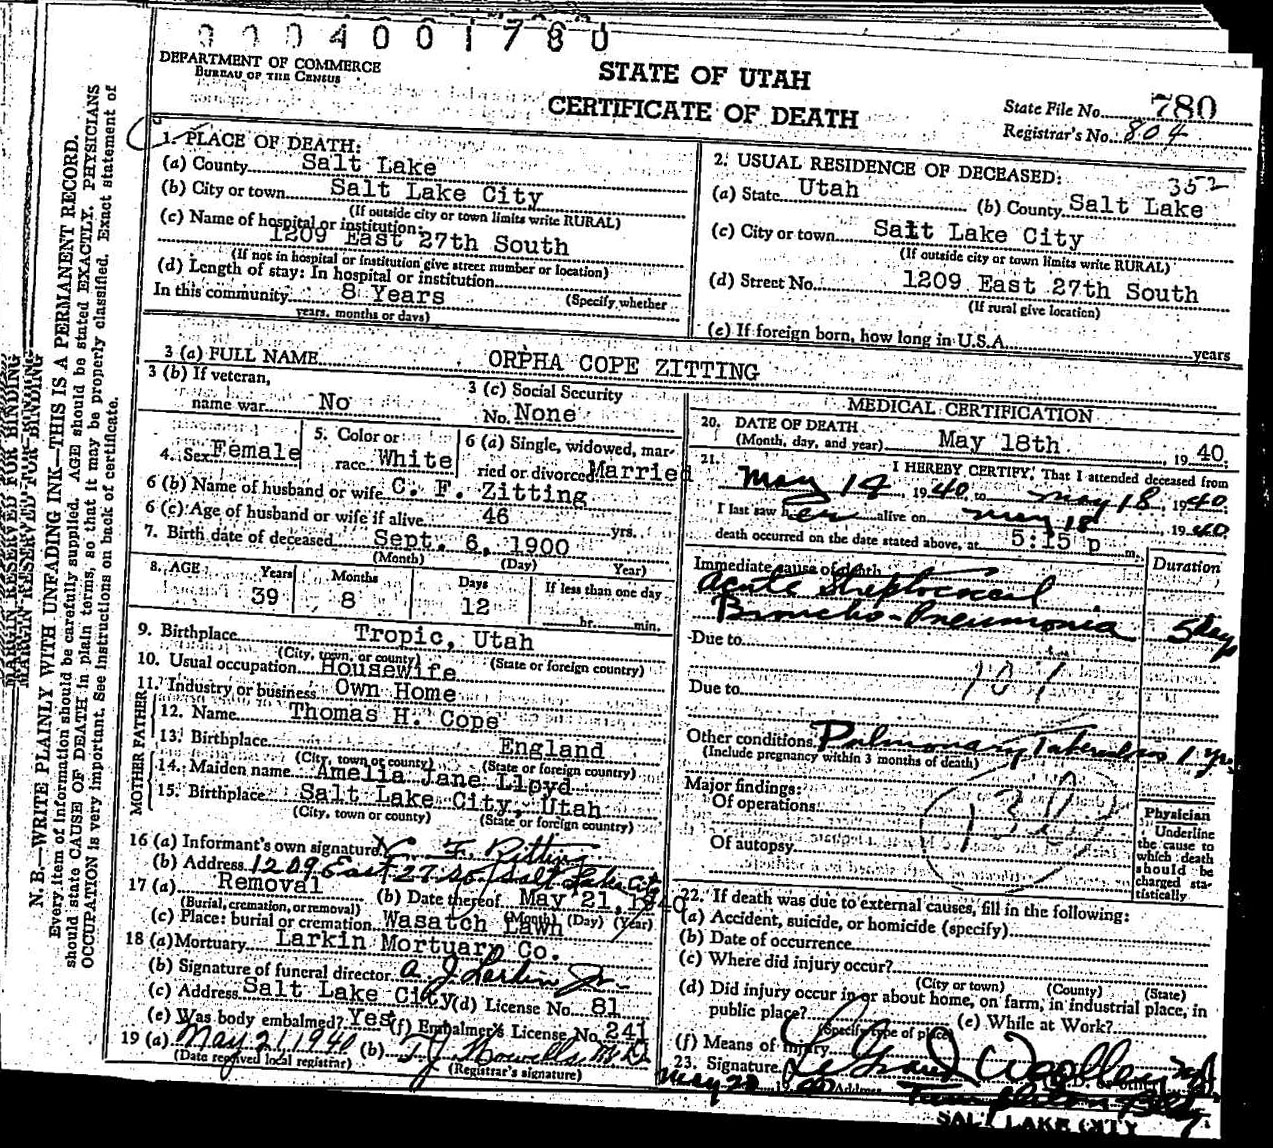 0004001780
DEPARTMENT OF COMMERCE
BUREAU OF THE CENSUS
STATE OF UTAH
CERTIFICATE OF DEATH
State File No. 780
Registrar's No. 804
1. PLACE OF DEATH:
(a) County Salt Lake
(b) City or town Salt Lake City
(If outside city or town limits write RURAL)
(c) Name of hospital or institution:
1209 East 27th South
(If not in hospital or institution give street number or location)
(d) Length of stay: In hospital or institution
(Specify whether
In this community 8 Years
years, months or days)
2. USUAL RESIDENCE OF DECEASED:
352
(a) State Utah (b) County Salt Lake
(c) City or town Salt Lake City
(If outside city or town limits write RURAL)
(d) Street No. 1209 East 27th South
(If rural give location)
(e) If foreign born, how long in U.S.A. years
3 (a) FULL NAME ORPHA COPE ZITTING
3 (b) If veteran,
name war No
3 (c) Social Security
No. None
4. Sex Female
5. Color or
race White
6 (a) Single, widowed, mar-
ried or divorced Married
6 (b) Name of husband or wife C. F. Zitting
6 (c) Age of husband or wife if alive 46 yrs.
7. Birth date of deceased Sept. 6, 1900
(Month) (Day) Year)
8. AGE Years Months Days If less than one day
39 8 12 hr. min.
9. Birthplace Tropic, Utah
(City, town, or county) (State or foreign country)
10. Usual occupation Housewife
11. Industry or business Own Home
FATHER
12. Name Thomas H. Cope
13. Birthplace England
(City, town or county) (State or foreign country)
MOTHER
14. Maiden name Amelia Jane Lloyd
15. Birthplace Salt Lake City, Utah
(City, town or county) (State or foreign country)
16 (a) Informant's own signature C. F. Zitting
(b) Address 1209 East 27 So. Salt Lake City
17 (a) Removal (b) Date thereof May 21, 1940
(Burial, cremation, or removal) (Month) (Day) (Year)
(c) Place: burial or cremation Wasatch Lawn
18 (a) Mortuary Larkin Mortuary Co.
(b) Signature of funeral director A. J. Larkin Jr.
(c) Address Salt Lake City (d) License No. 81
(e) Was body embalmed? Yes (f) Embalmer's License No. 241
19 (a) May 21, 1940 (b) T J Howells M D
(Date received local registrar) (Registrar's signature)
MEDICAL CERTIFICATION
20. DATE OF DEATH
(Month, day, and year) May 18th 19 40
21. I HEREBY CERTIFY, That I attended deceased from
May 14, 1940, to May 18, 1940
I last saw her alive on May 18 1940
death occurred on the date stated above, at 5:15 p m.
Immediate cause of death Duration
Acute Streptococcal
Broncho-Pneumonia 5 days
Due to
107
Due to
Other conditions Pulmonary Tuberculosis 1 yr.
(Include pregnancy within 3 months of death)
Major findings:
Of operations
Of autopsy
130
Physician
Underline
the cause to
which death
should be
charged sta-
tistically
22. If death was due to external causes, fill in the following:
(a) Accident, suicide, or homicide (specify)
(b) Date of occurrence
(c) Where did injury occur?
(City or town) (County) (State)
(d) Did injury occur in or about home, on farm, in industrial place, in
public place? (e) While at Work?
(Specify type of place)
(f) Means of injury
23. Signature LeGrand Woolley
May 20 1940 Address Templeton Bldg.
SALT LAKE CITY
MARGIN RESERVED FOR BINDING
N. B.—WRITE PLAINLY WITH UNFADING INK—THIS IS A PERMANENT RECORD.
Every item of information should be carefully supplied. AGE should be stated EXACTLY. PHYSICIANS
should state CAUSE OF DEATH in plain terms, so that it may be properly classified. Exact statement of
OCCUPATION is very important. See instructions on back of certificate.